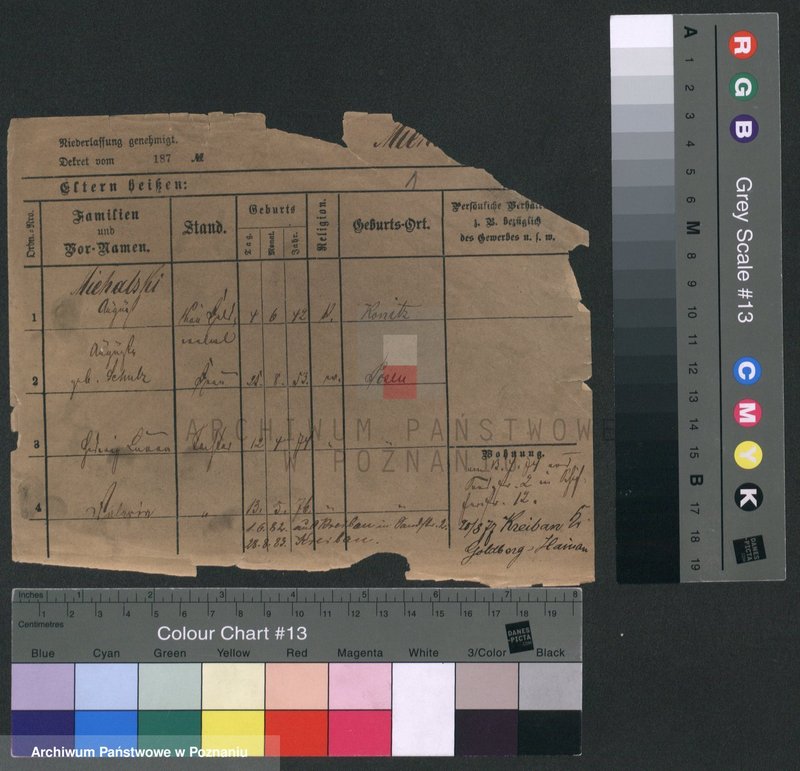 Niederlassung genehmigt.
Dekret vom 187 №
Eltern heißen:
Ordn.-Nro.
Familien
und
Vor-Namen.
Stand.
Geburts
Tag.
Monat.
Jahr.
Religion.
Geburts-Ort.
Persönliche Verhält
z. B. bezüglich
des Gewerbes u. s. w.
Michalski
1 August 4 6 42 Konitz
Auguste
2 geb. Schulz Frau 25. 8. 53. Posen
3 Hedwig Tochter 12 4 74 " "
Wohnung.
4 Valeria " 13. 5. 76 " "
1.6.82. aus Kreibau in Sandstr. 2.
28.8.83. Kreibau.
20/8 79 Kreibau Kr
Goldberg-Hainau
ARCHIWUM PAŃSTWOWE
W POZNANIU
A 1 2 3 4 5 6 M 8 9 10 11 12 13 14 15 B 17 18 19
R G B
Grey Scale #13
C M Y K
DANES
-PICTA
Inches 1 2 3 4 5 6 7 8
1 2 3 4 5 6 7 8 9 10 11 12 13 14 15 16 17 18 19
Centimetres
Colour Chart #13
DANES
-PICTA
Blue Cyan Green Yellow Red Magenta White 3/Color Black
Archiwum Państwowe w Poznaniu